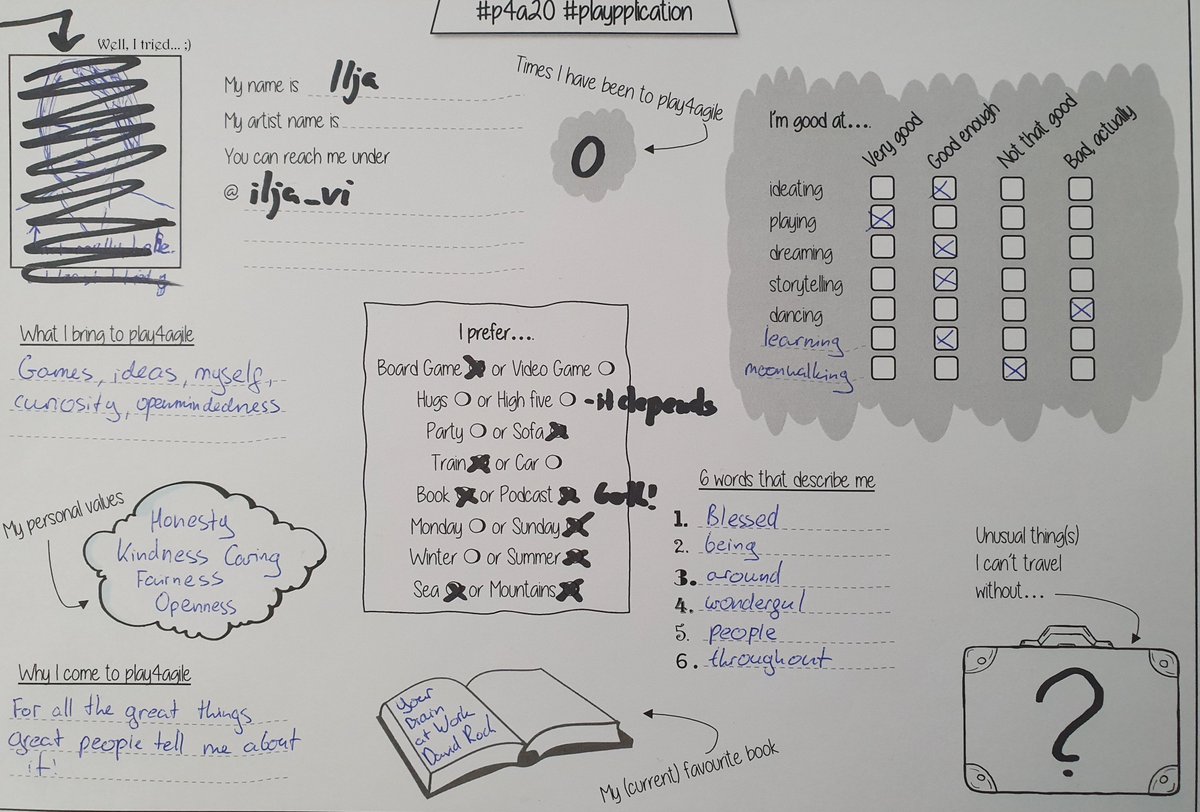 #p4a20 #playpplication
Well, I tried... ;)
My name is Ilja
My artist name is
You can reach me under
@ ilja_vi
Times I have been to play4agile
0
I'm good at....
Very good
Good enough
Not that good
Bad, actually
ideating
playing
dreaming
storytelling
dancing
learning
moonwalking
What I bring to play4agile
Games, ideas, myself,
curiosity, openmindedness
I prefer....
Board Game or Video Game
Hugs or High five - it depends
Party or Sofa
Train or Car
Book or Podcast both!
Monday or Sunday
Winter or Summer
Sea or Mountains
My personal values
Honesty
Kindness Caring
Fairness
Openness
6 words that describe me
1. Blessed
2. being
3. around
4. wonderful
5. people
6. throughout
Unusual thing(s)
I can't travel
without...
?
Why I come to play4agile
For all the great things
great people tell me about
it!
Your
Brain
at Work
David Rock
My (current) favourite book